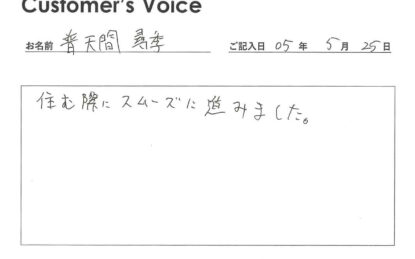 Customer's Voice
お名前 普天間 尋季 ご記入日 05 年 5 月 25 日
住む際にスムーズに進みました。